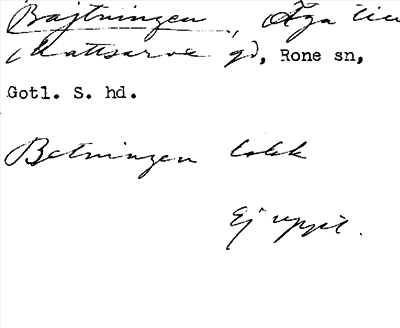 Bajtningen, Äga till
Mattsarve gd, Rone sn,
Gotl. S. hd.
Betningen lokk
Ej uppt.